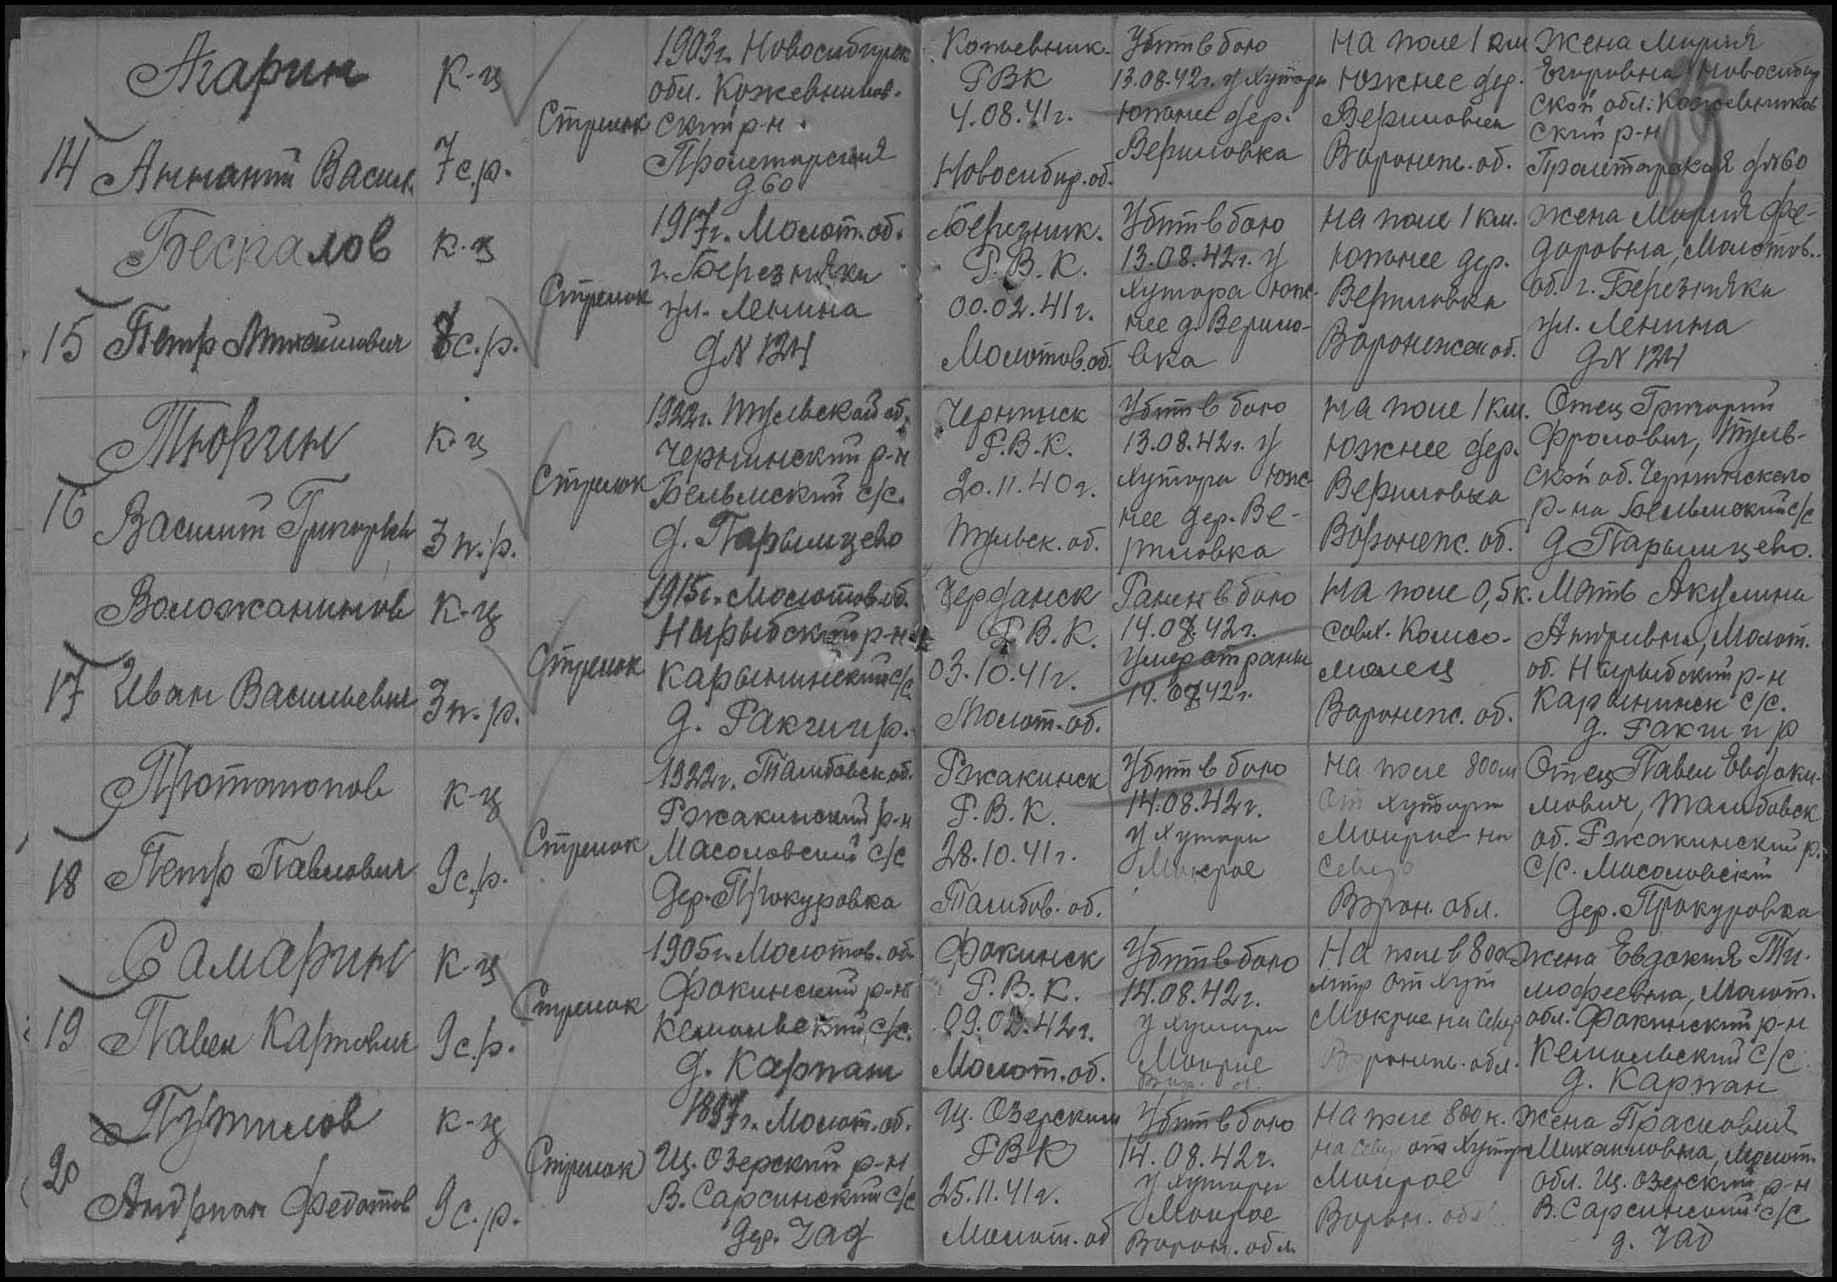 14
Агарин
Василь.
к-ц
7 с.р.
Стрелок
1903г. Новосибирск
обл. Кожевников-
ский р-н
Пролетарская
д 60
РВК
4.08.41г.
Новосибир. об.
Убит в бою
13.08.42г. у Хутора
южнее дер.
Вериловка
На поле 1 км
южнее дер.
Вериловка
Воронеж. об.
Жена Мария
Егоровна Новосибир
ской обл. Кожевников
ский р-н
Пролетарская д№60
15
Бескалов
Петр Михайлович
к-ц
с.р.
Стрелок
1917г. Молот. об.
г. Березняки
ул. Ленина
д N 124
Березник.
Р.В.К.
00.02.41г.
Молотов. об.
Убит в бою
13.08.42г. у
Хутора юж-
нее д. Верило-
вка
На поле 1 км.
южнее дер.
Вериловка
Воронежск об.
Жена Мария Фе-
доровна, Молотов.
об. г. Березняки
ул. Ленина
д N 124
16
Тюрин
Василий Григорьев
к-ц
3 п.р.
Стрелок
1922г. Тульской об.
Чернинский р-н
с/с.
д. Парылцево
Чернинск
Р.В.К.
20.11.40г.
Тульск. об.
Убит в бою
13.08.42г. у
Хутора юж
нее дер. Ве-
риловка
На поле 1 км.
южнее дер.
Вериловка
Воронеж. об.
Отец Григорий
Фролович, Туль-
ской об. Чернинского
р-на с/с
д Парылцево.
17
Воложанинов
Иван Васильевич
к-ц
3 п.р.
Стрелок
1915г. Молотов. об.
Ныробский р-н
с/с
д. Ракшир.
Чердынск
Р.В.К.
03.10.41г.
Молот. об.
Ранен в бою
14.08.42г.
Умер от раны
19.08.42г.
На поле 0,5 к.
совх. Комсо-
молец
Воронеж. об.
Мать Акулина
Андривна, Молот.
об. Ныробский р-н
с/с.
д. Ракшир
18
Протопопов
Петр Павлович
к-ц
9 с.р.
Стрелок
1922г. Тамбовск об.
Ржакинский р-н
Масоловский с/с
Дер. Прокуровка
Ржакинск
Р.В.К.
28.10.41г.
Тамбов. об.
Убит в бою
14.08.42г.
у Хутора
Мокрое
На поле 800 м
от хутора
Мокрое на
Север
Ворон. обл.
Отец Павел Евдоки-
мович, Тамбовск
об. Ржакинский р.
с/с. Масоловский
Дер. Прокуровка
19
Самарин
Павел Карпович
к-ц
9 с.р.
Стрелок
1905г. Молотов. об.
Фокинский р-н
с/с.
д. Карпан
Фокинск
Р.В.К.
09.02.42г.
Молот. об.
Убит в бою
14.08.42г.
у Хутора
Мокрое
На поле в 800
мтр от Хут
Мокрое на Север
Воронеж. обл.
Жена Евдокия Ти-
мофеевна, Молот.
обл. Фокинский р-н
с/с
д. Карпан
20
Путилов
Андриан Федотов
к-ц
9 с.р.
Стрелок
1897г. Молот. об.
Щ. Озерский р-н
В. Сарсинский с/с
Дер. Чад
Щ. Озерский
РВК
25.11.41г.
Молот. об
Убит в бою
14.08.42г.
у Хутора
Мокрое
Ворон. обл.
На поле 800 м.
на Север от Хутора
Мокрое
Ворон. обл
Жена Прасковия
Михаиловна, Молот.
обл. Щ. Озерский р-н
В. Сарсинский с/с
д. Чад